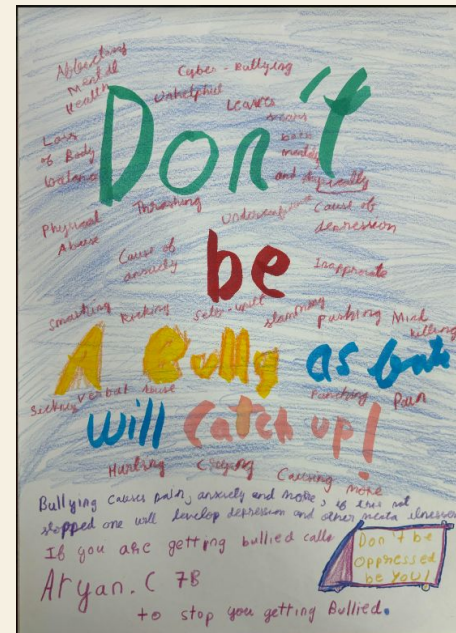 Affecting Mental Health
Cyber-Bullying
Unhelpful
Leaves scars both mentally and physically
Don't
Loss of Body balance
Physical Abuse
Thrashing
Cause of depression
Cause of anxiety
be
Smacking
Kicking
slamming
pushing
Mind killing
A Bully as
verbal
Punching
Pain
will Catch up!
Hurting
Crying
Causing more
Bullying causes pain, anxiety and more, if this not
stopped one will develop depression and other illnesses
If you are getting bullied call
Don't be
Oppressed
be You!
Aryan. C 7B
to stop you getting Bullied.